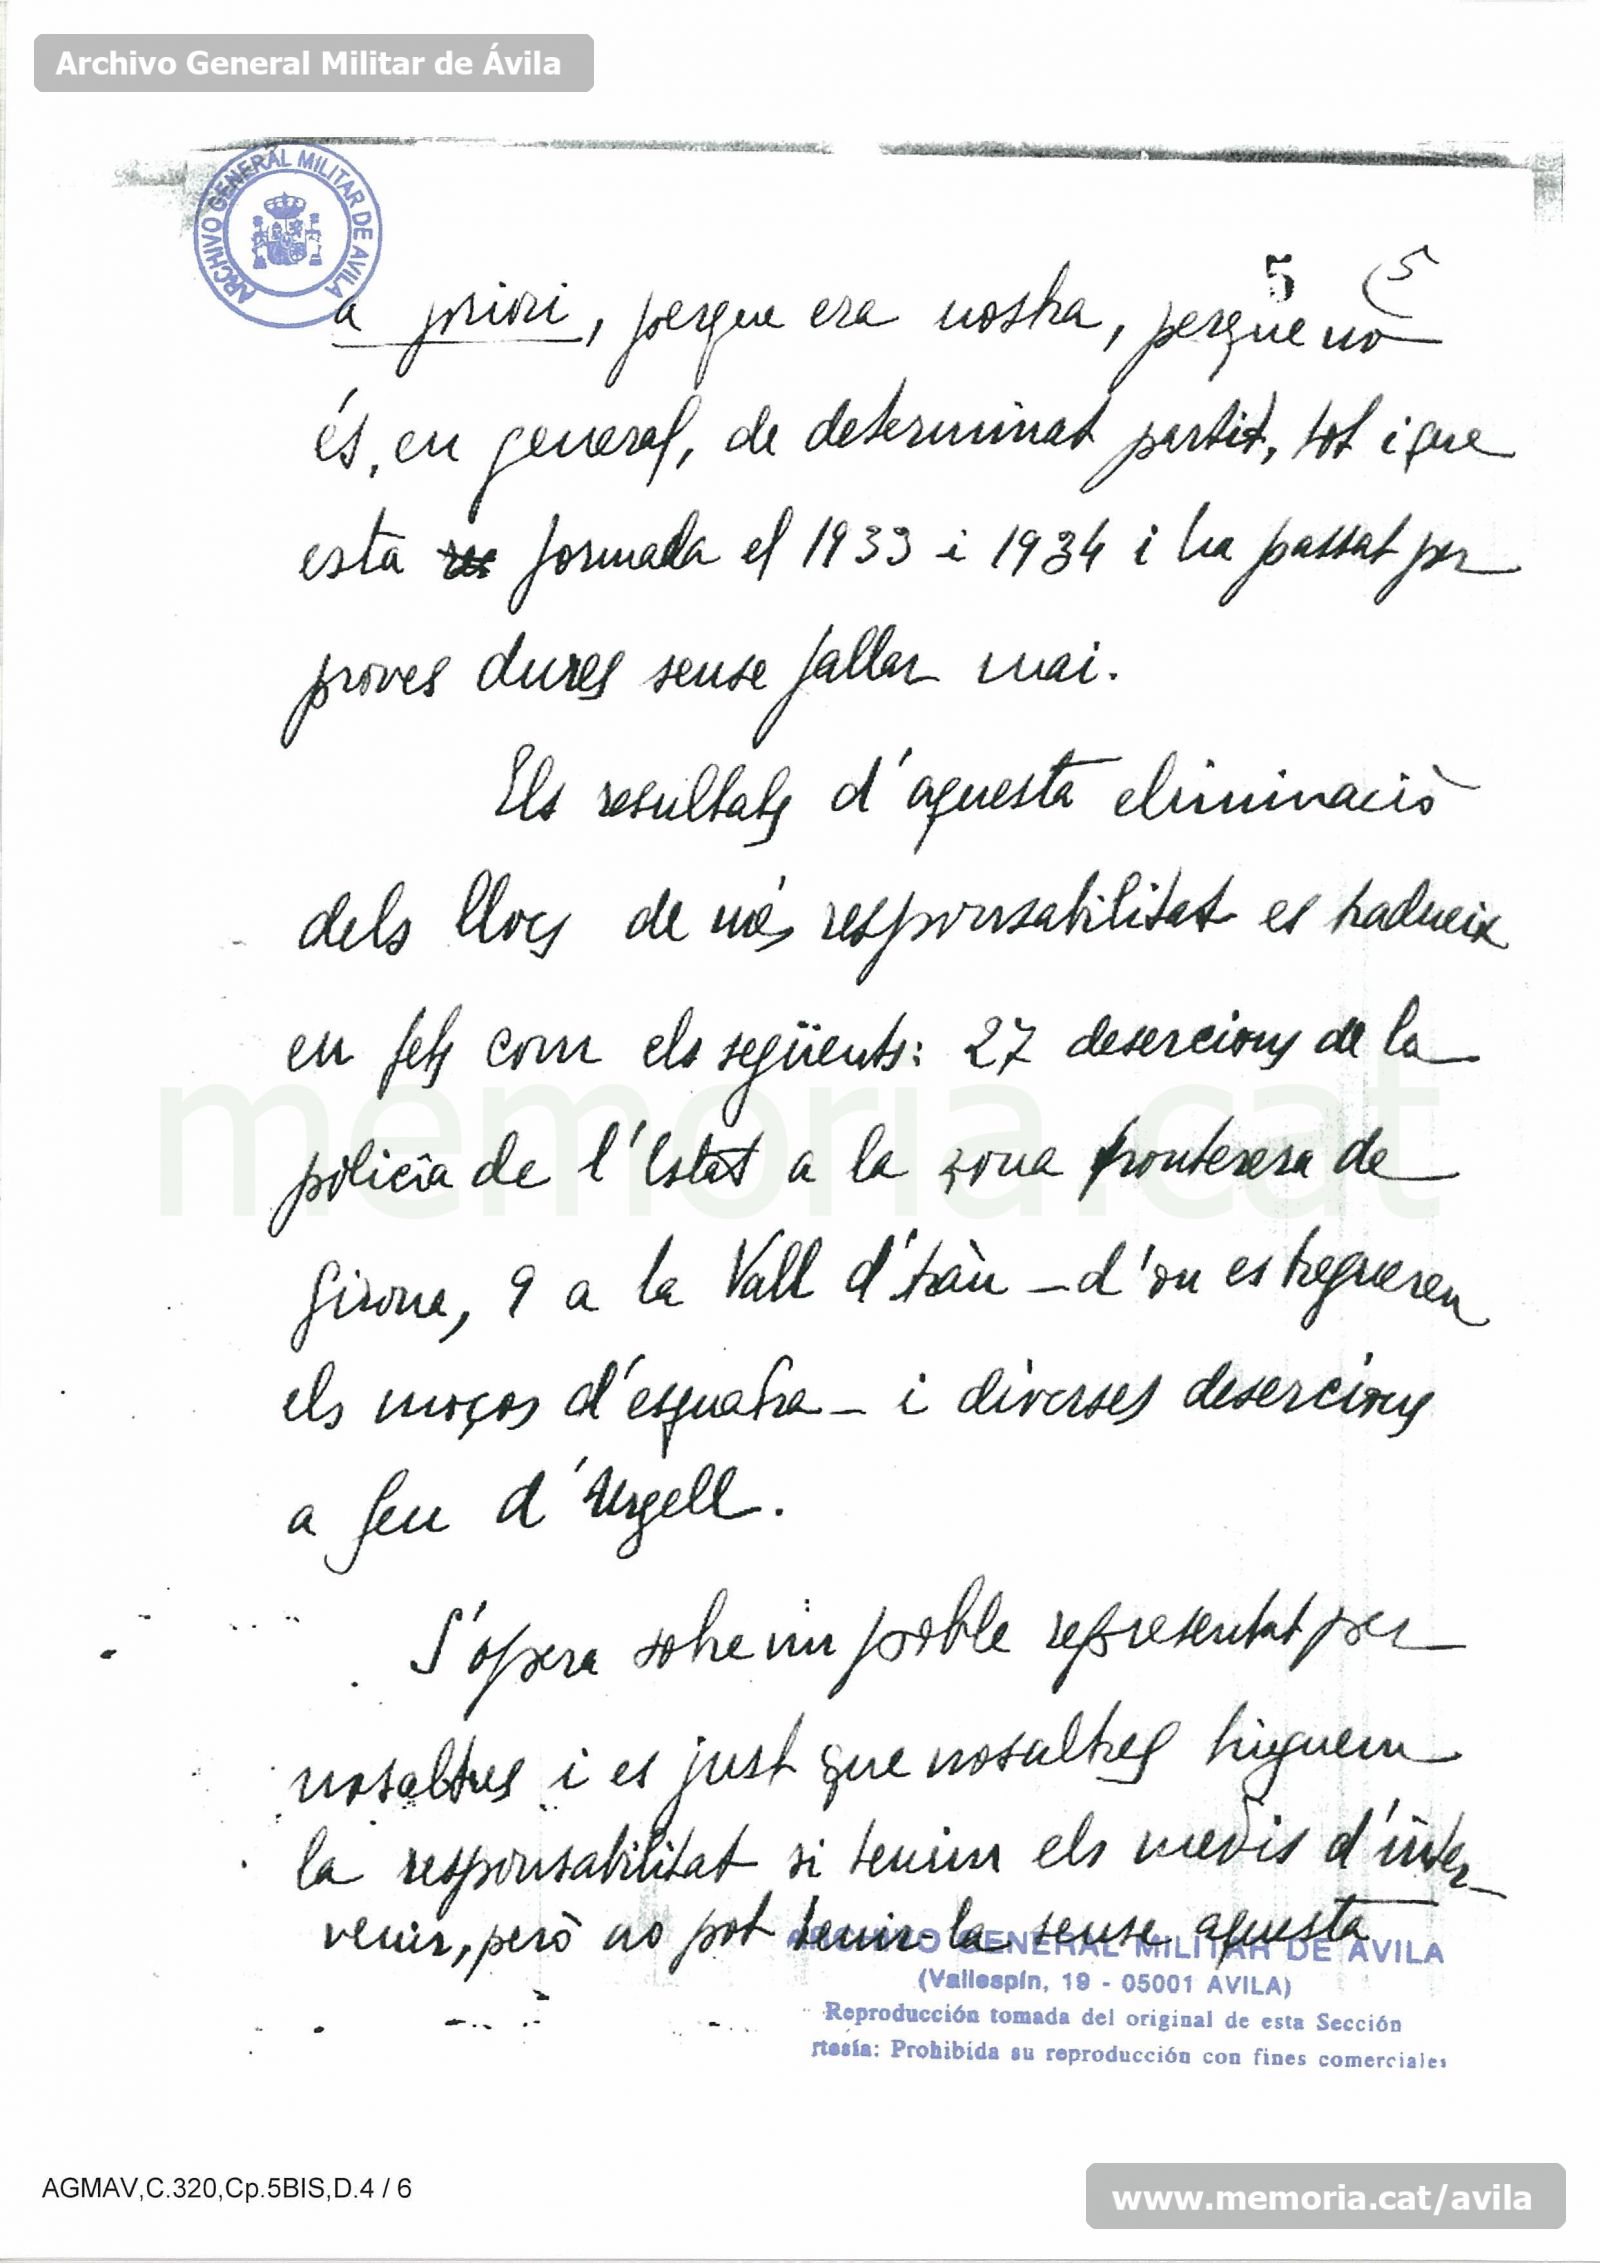 Archivo General Militar de Ávila
ARCHIVO GENERAL MILITAR DE AVILA
5 5
a priori, perque era nostra, perquè no
és, en general, de determinat partit, tot i que
esta formada el 1933 i 1934 i ha passat per
proves dures sense fallar mai.
Els resultats d'aquesta eliminaciò
dels llocs de més responsabilitat es tradueix
en fets com els següents: 27 desercions de la
policía de l'Estat a la zona fronterera de
Girona, 9 a la Vall d'Aràn – d'on es tragueren
els moços d'esquatra – i diverses desercions
a Seu d'Urgell.
S'opera sobre un poble representat per
nosaltres i es just que nosaltres tinguem
la responsabilitat si tenim els medis d'inter-
venir, però no pot tenir-la sense aquesta
ARCHIVO GENERAL MILITAR DE AVILA
(Vallespín, 19 - 05001 AVILA)
Reproducción tomada del original de esta Sección
rtesía: Prohibida su reproducción con fines comerciales
memoria.cat
AGMAV,C.320,Cp.5BIS,D.4 / 6
www.memoria.cat/avila